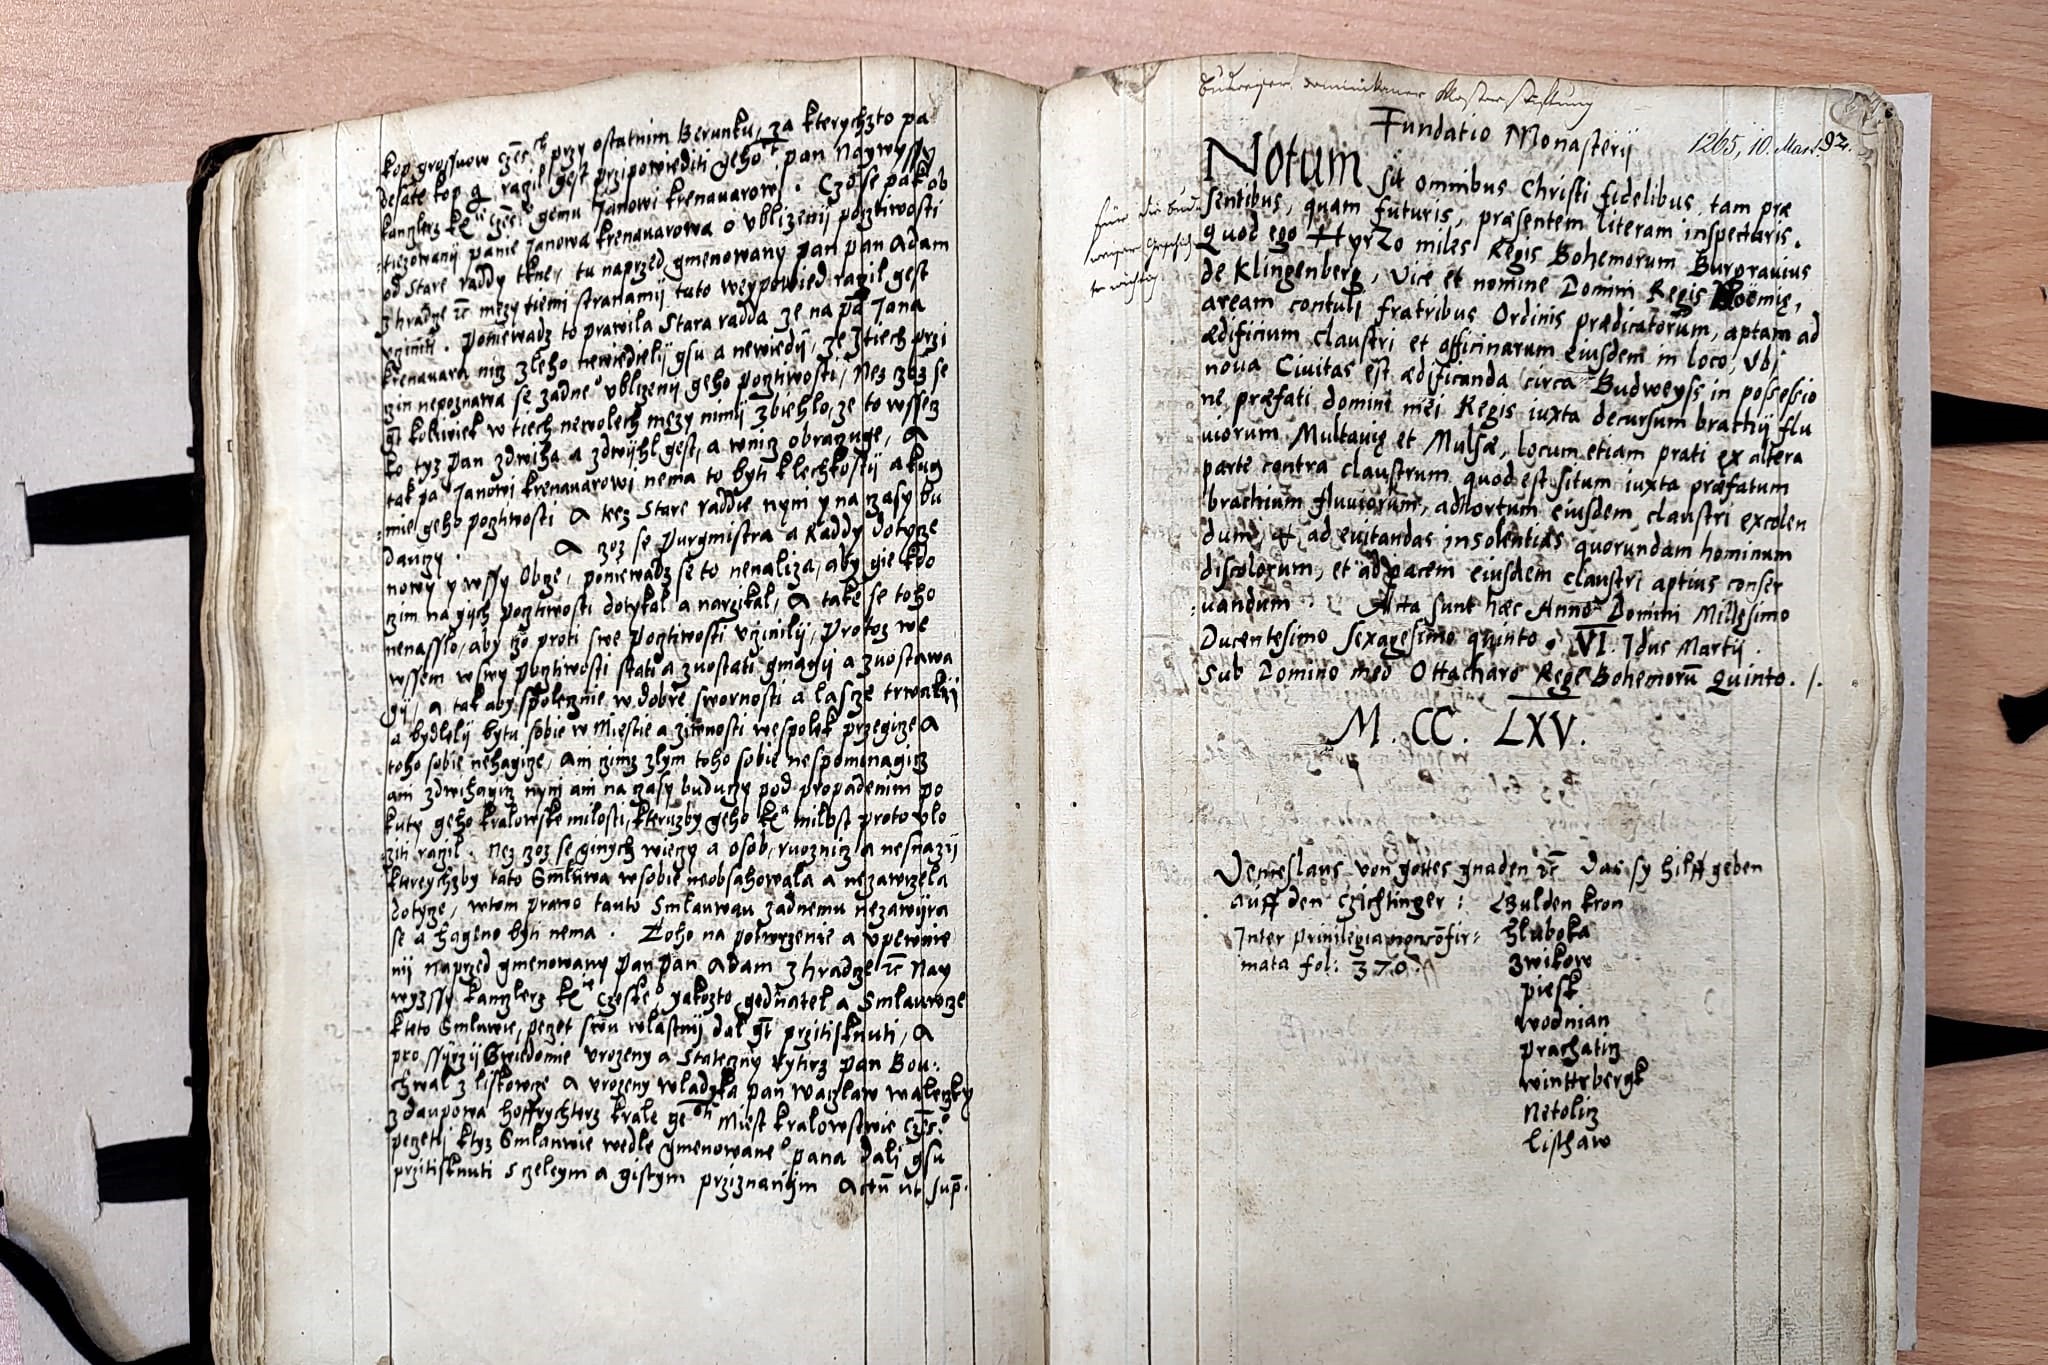 kop grossuow czes ch przy ostatnim Berunku, za kterychzto pa
desate kop g razil gest przipowiediti geho t pan Naywyssy
kanzlerz kę czes gemu Janowi krenauarowi. Czo se pak ob
tiezowanij panie Janowa krenauarowa o vblizenij pocztiwosti
od Stare raddy tkne, tu naprzed gmenowany pan pan Adam
z hradze zc mezy tiemi stranamij tuto weypowied razil gest
vcziniti. Poniewadz to prawila Stara radda ze na pa Jana
krenauara nicz zleho newiedielij gsu a newiedij, ze z tiech przi
czin nepoznawa se zadne o vblizenij geho pocztiwosti, Nez czoz se
gt kolwiek w tiech newolech mezy nimij zbiehlo, ze to wssecz
ko tyz Pan zdwiha a zdwihl gest, a wnicz obraczuge, A
tak pa Janowi krenauarowi nema to byti k lechkostij a kug
mie geho pocztiwosti A tez Stare raddie nynij y na czasy bu
dauczy. A czoz se Purgmistra a Raddy dotycze
nowy y wssy Obcze, poniewadz se to nenaliza, aby gie kdo
czim na gych pocztiwosti dotykal a narzikal, A take se toho
nenasslo, aby czo proti swe pocztiwosti vczinilij, Protoz we
wssem w swy pocztiwosti stati a zuostati gmagij a zuostawa
gij, A tak aby spolecznie w dobre swornosti a lasce trwalij
a bydlelij bytu sobie w Miestie a ziwnosti wespolek przegicze A
toho sobie nehagicze, Ani czimz zlym toho sobie nespominagicz
ani zdwihagicz nynj ani na czasy buduczy pod propadenim po
kuty geho kralowske milosti, kteruzby geho kę milost proto vlo
ziti razil. Nez czoz se ginych wieczy a osob, ruoznicz a nesnazij
ktereychzby tato Smluwa w sobie neobsahowala a nezawrzela
dotycze, w tom prawo tauto Smlauwau zadnemu nezawijra
se a hageno byti nema. Toho na potwrzenie a vpewnie
nij naprzed gmenowany Pan Pan Adam z hradze zc Nay
wyzssy kanzlerz kę Czeske o yakozto gednatel a Smlauwcze
k teto Smluwie, peczet swu wlastnij dal gt przitisknuti, A
pro ssyrzij Swiedomie vrozeny a Stateczny rytirz pan Bou:
chwal z liskowcze A vrozeny wladyka pan waczlaw waleczky
z daupowa hoffrychterz krale ge o Miest kralowstwie Czes:
peczeti k tyz Smlauwie wedle gmenowane o pana dali gsu
przitisknuti s czeleym a gistym prziznanijm Actu ut sup.
Budweiser Dominikaner Klosterstiftung
Fundatio Monasterij
1265, 10. Mart. 92.
für die Bud
weiser Geschich
te wichtig
Notum sit omnibus Christi fidelibus, tam præ
sentibus, quam futuris, præsentem literam inspecturis.
Quod ego Hyrzo miles Regis Bohemorum Burgrauius
de Klingenberg, Vice et nomine Domini Regis Boëmię,
aream contulj fratribus Ordinis prædicatorum, aptam ad
ædificium claustri et officinarum eiusdem in loco, vbi
noua Civitas est ædificanda circa Budweyss in possessio
ne præfati domini mei Regis iuxta decursum brathij flu
uiorum Multauię et Mulsæ, locum etiam prati ex altera
parte contra claustrum quod est situm iuxta præfatum
brachium fluuiorum, ad hortum eiusdem claustri excolen
dum, et ad euitandas insolentias quorundam hominum
discolorum, et ad pacem eiusdem claustri aptius conser
uandum. Acta sunt hæc Anno Domini Millesimo
Ducentesimo sexagesimo quinto. VI. Idus Martij.
Sub Domino meo Ottacharo Rege Bohemoru Quinto. /.
M. CC. LXV.
Venceslaus von gottes gnaden zc Das sy hilff geben
auff den Czichtinger: Gulden kron
Inter priuilegia non cōfir= Hluboka
mata fol: 370. zwikow
piesk
wodnian
prachaticz
wintterbergk
Netolicz
Lischaw